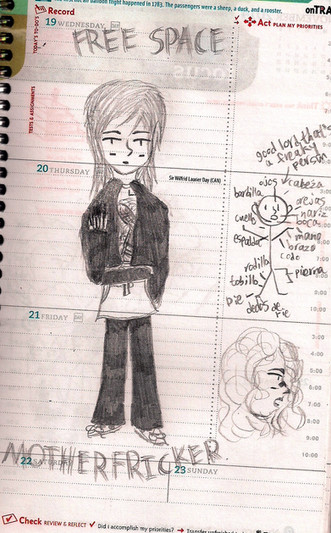 balloon flight happened in 1783. The passengers were a sheep, a duck, and a rooster.
onTRA
Record
Act PLAN MY PRIORITIES
19 WEDNESDAY
FREE SPACE
TODAY'S TO-DO'S
TESTS & ASSIGNMENTS
20 THURSDAY
Sir Wilfrid Laurier Day (CAN)
good lord that's
a sneaky
person
ojos
cabeza
barbilla
orejas
nariz
boca
cuello
mano
espalda
brazo
codo
rodilla
pierna
tobillo
pie
dedos de
pie
21 FRIDAY
3:00
4:00
5:00
6:00
7:00
8:00
9:00
10:00
MOTHERFRICKER
22
23 SUNDAY
Check REVIEW & REFLECT
Did I accomplish my priorities?